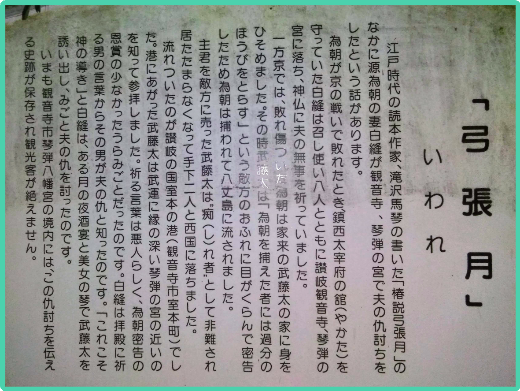 「弓張月」
いわれ
江戸時代の読本作家、滝沢馬琴の書いた「椿説弓張月」の
なかに源為朝の妻白縫が観音寺、琴弾の宮で夫の仇討ちを
したという話があります。
為朝が京の戦いで敗れたとき鎮西太宰府の館(やかた)を
守っていた白縫は召し使い八人とともに讃岐観音寺、琴弾の
宮に落ち、神仏に夫の無事を祈っていました。
一方京では、敗れ傷ついた為朝は家来の武藤太の家に身を
ひそめました。その時武藤太は「為朝を捕えた者には過分の
ほうびをとらす」という敵方のおふれに目がくらんで密告
したため為朝は捕われて八丈島に流されました。
主君を敵方に売った武藤太は〝痴(し)れ者〟として非難され
居たたまらなくなって手下二人と西国に落ちました。
流れついたのが讃岐の国室本の港(観音寺市室本町)でし
た。港にあがった武藤太は武運に縁の深い琴弾の宮の近いの
を知って参拝しました。祈る言葉は悪人らしく、為朝密告の
恩賞の少なかったうらみごとだったのです。白縫は拝殿に祈
る男の言葉からその男が夫の仇と知ったのです。「これこそ
神の導き」と白縫は、ある月の夜酒宴と美女の琴で武藤太を
誘い出し、みごと夫の仇を討ったのです。
いまも観音寺市琴弾八幡宮の境内には、この仇討ちを伝え
る史跡が保存され観光客が絶えません。